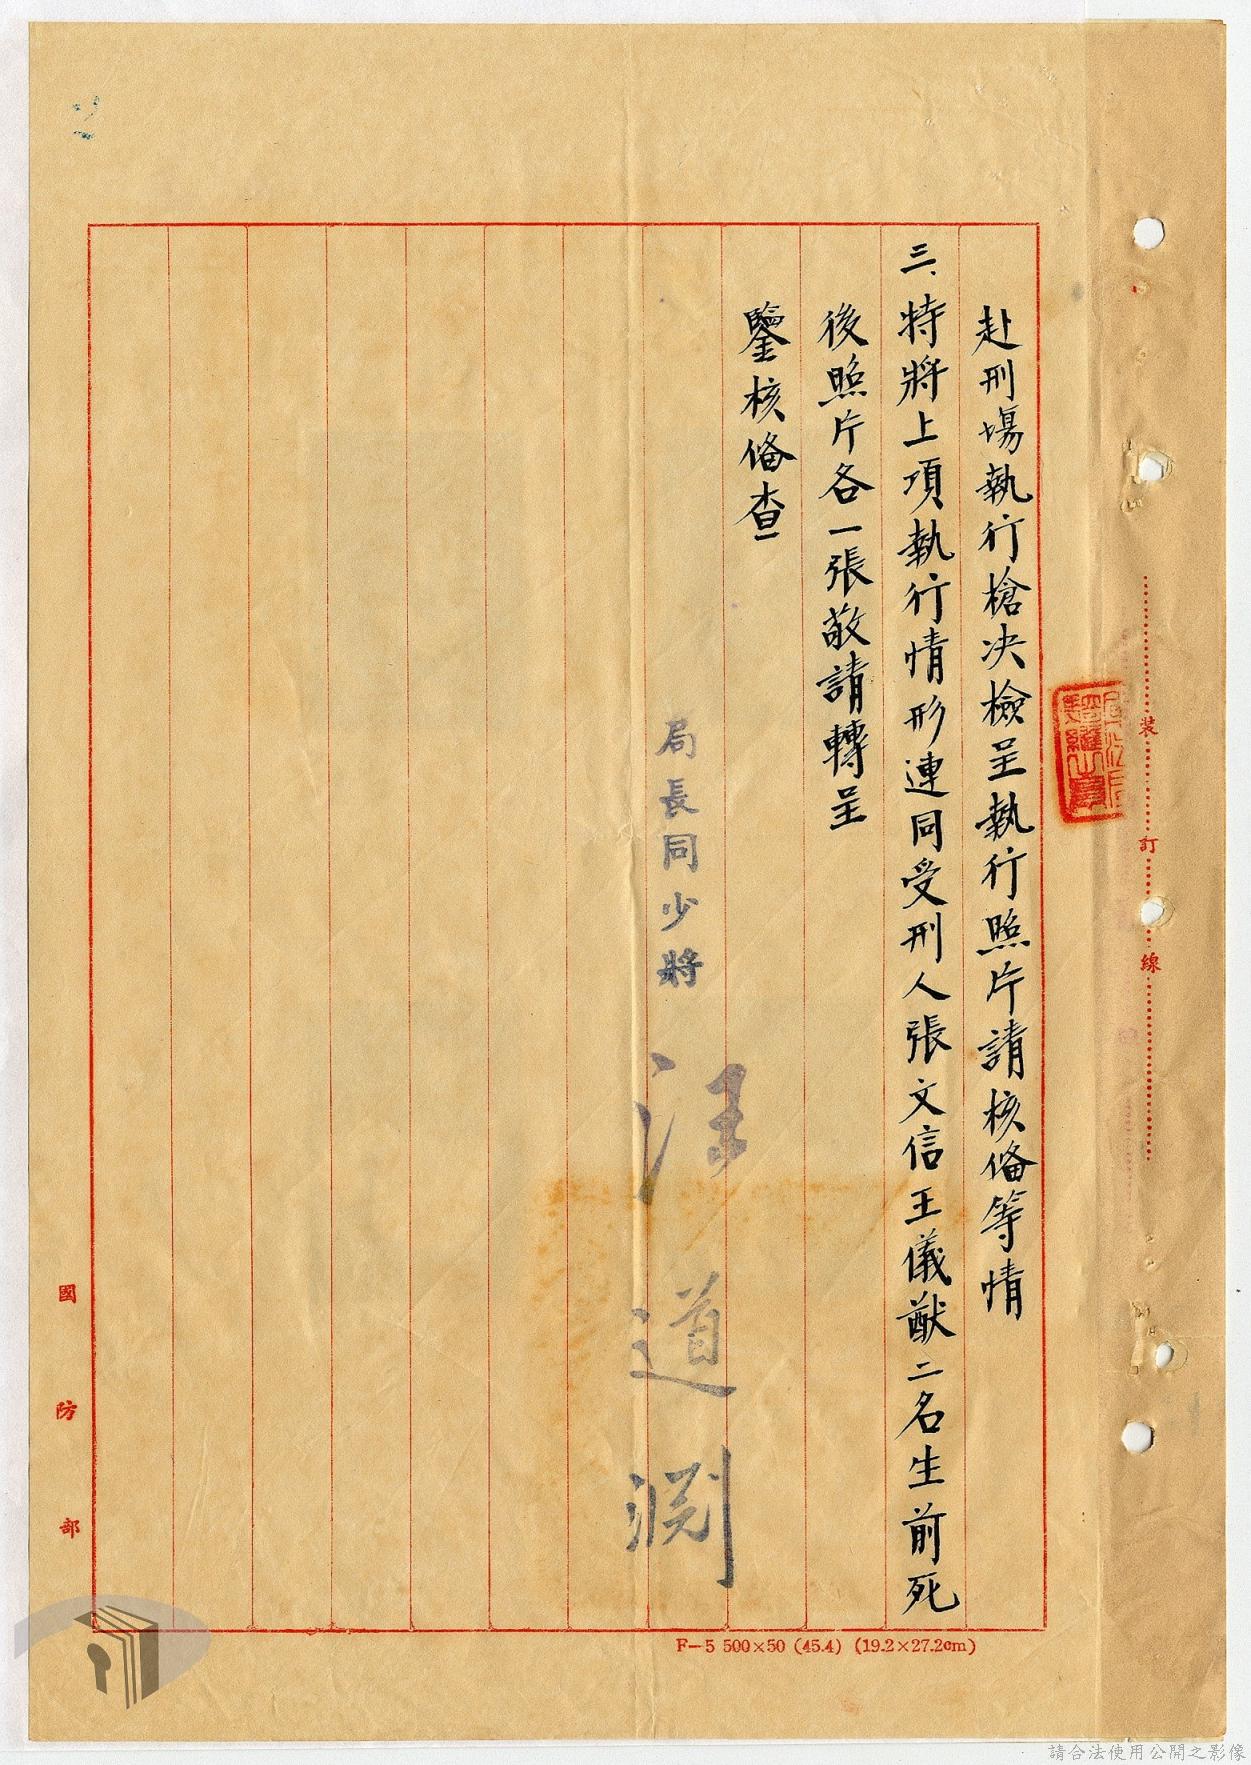 赴刑場執行槍决檢呈執行照片請核俻等情
三、特將上項執行情形連同受刑人張文信王儀猷二名生前死
後照片各一張敬請轉呈
鑒核俻查
局長同少將 汪道淵
裝訂線
國防部
F—5 500×50 (45.4) (19.2×27.2cm)
請合法使用公開之影像